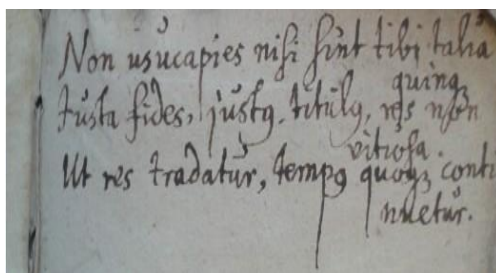 Non usucapies nisi sint tibi talia
quinq;
Iusta fides, justq, titulq, res non
vitiosa.
Ut res tradatur, tempq quoq; conti
nuetur.